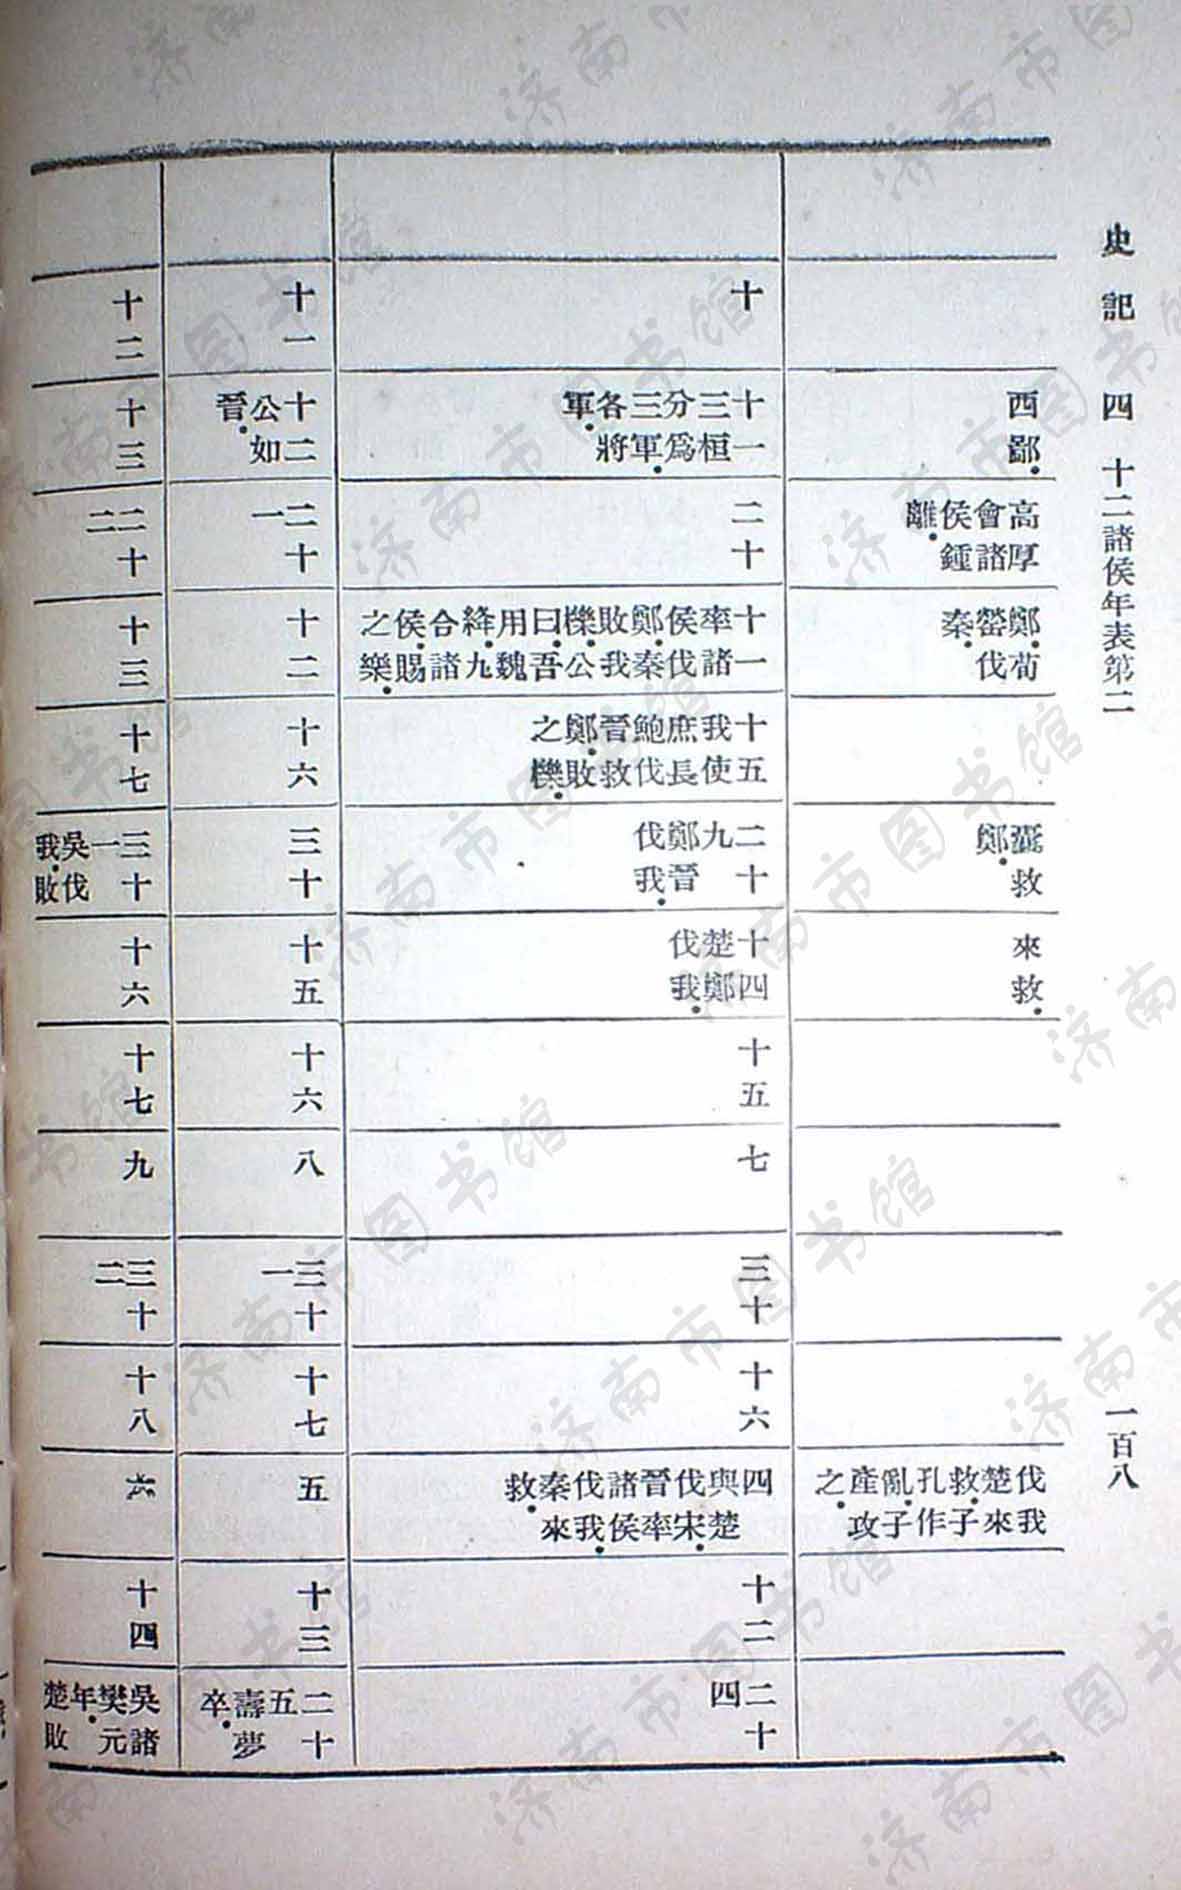 史記四 十二諸侯年表第二 一百八
西鄙。
高厚會諸侯鍾離。
鄭。荀罃伐秦。
囊救鄭。
來救。
伐我楚來救。子孔作亂。子產攻之
十
十一三桓分爲三軍。各將軍。
二十
十一率諸侯伐鄭。秦敗我櫟。公曰。吾用魏絳。九合諸侯。賜之樂。
十五我使庶長鮑伐晉救鄭。敗之櫟。
二十九鄭晉伐我。
十四楚鄭伐我。
十五
七
三十
十六
四與楚伐宋。晉率諸侯伐我。秦來救。
十二
二十四
十一
十二公如晉。
二十一
十二
十六
三十
十五
十六
八
三十一
十七
五
十三
二十五壽夢卒。
十二
十三
二十二
十三
十七
三十一吳伐我。敗
十六
十七
九
三十二
十八
六
十四
吳諸樊元年。楚敗
济南市图书馆